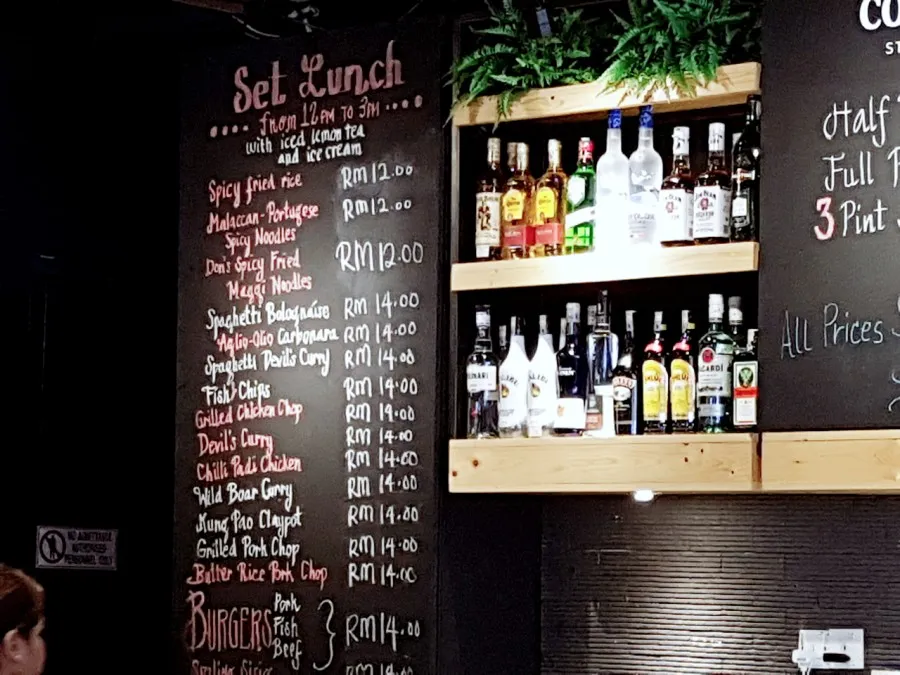 Set Lunch
.... from 12PM TO 3PM ....
with iced lemon tea
and ice cream
Spicy fried rice RM 12.00
Malaccan-Portugese RM 12.00
Spicy Noodles
Don's Spicy Fried RM 12.00
Maggi Noodles
Spaghetti Bolognaise RM 14.00
Aglio-Olio Carbonara RM 14.00
Spaghetti Devil's Curry RM 14.00
Fish & Chips RM 14.00
Grilled Chicken Chop RM 14.00
Devil's Curry RM 14.00
Chilli Padi Chicken RM 14.00
Wild Boar Curry RM 14.00
Kung Pao Claypot RM 14.00
Grilled Pork Chop RM 14.00
Butter Rice Pork Chop RM 14.00
BURGERS Pork Fish Beef } RM 14.00
CO
ST
Half
Full P
3 Pint
All Prices
BACARDI
NO ADMITTANCE
AUTHORISED
PERSONNEL ONLY